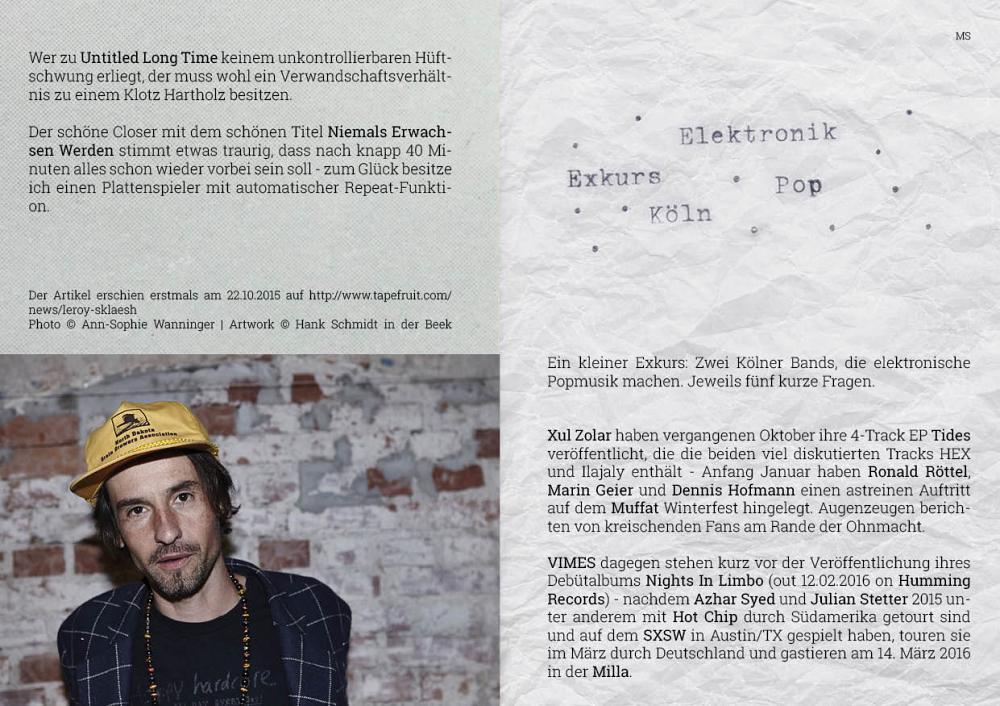 Wer zu Untitled Long Time keinem unkontrollierbaren Hüft-
schwung erliegt, der muss wohl ein Verwandschaftsverhält-
nis zu einem Klotz Hartholz besitzen.
Der schöne Closer mit dem schönen Titel Niemals Erwach-
sen Werden stimmt etwas traurig, dass nach knapp 40 Mi-
nuten alles schon wieder vorbei sein soll - zum Glück besitze
ich einen Plattenspieler mit automatischer Repeat-Funkti-
on.
Der Artikel erschien erstmals am 22.10.2015 auf http://www.tapefruit.com/
news/leroy-sklaesh
Photo © Ann-Sophie Wanninger | Artwork © Hank Schmidt in der Beek
North Dakota
Growers Association
happy hardcore
MS
Elektronik
Exkurs
Pop
Köln
Ein kleiner Exkurs: Zwei Kölner Bands, die elektronische
Popmusik machen. Jeweils fünf kurze Fragen.
Xul Zolar haben vergangenen Oktober ihre 4-Track EP Tides
veröffentlicht, die die beiden viel diskutierten Tracks HEX
und Ilajaly enthält - Anfang Januar haben Ronald Röttel,
Marin Geier und Dennis Hofmann einen astreinen Auftritt
auf dem Muffat Winterfest hingelegt. Augenzeugen berich-
ten von kreischenden Fans am Rande der Ohnmacht.
VIMES dagegen stehen kurz vor der Veröffentlichung ihres
Debütalbums Nights In Limbo (out 12.02.2016 on Humming
Records) - nachdem Azhar Syed und Julian Stetter 2015 un-
ter anderem mit Hot Chip durch Südamerika getourt sind
und auf dem SXSW in Austin/TX gespielt haben, touren sie
im März durch Deutschland und gastieren am 14. März 2016
in der Milla.